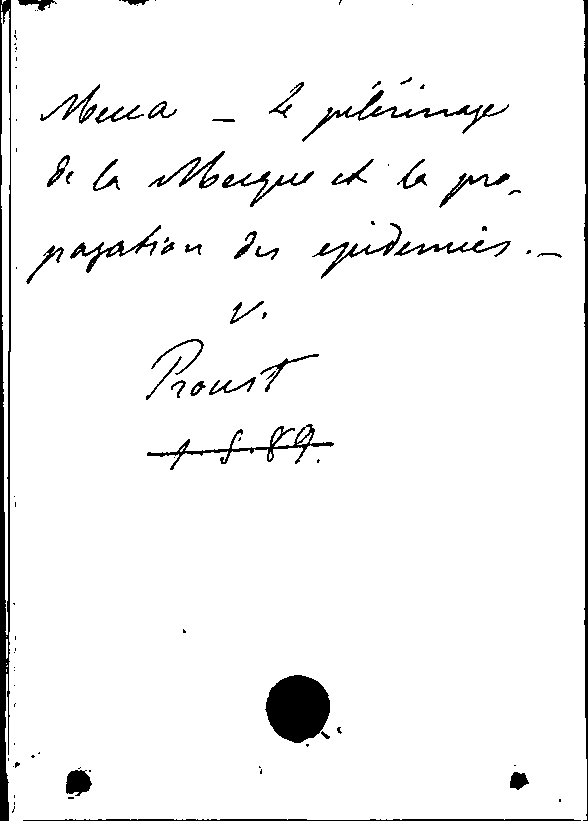 Mecca - Le pélérinage
de la Mecque et la pro-
pagation des epidemies. -
v.
Proust
1.5.89.